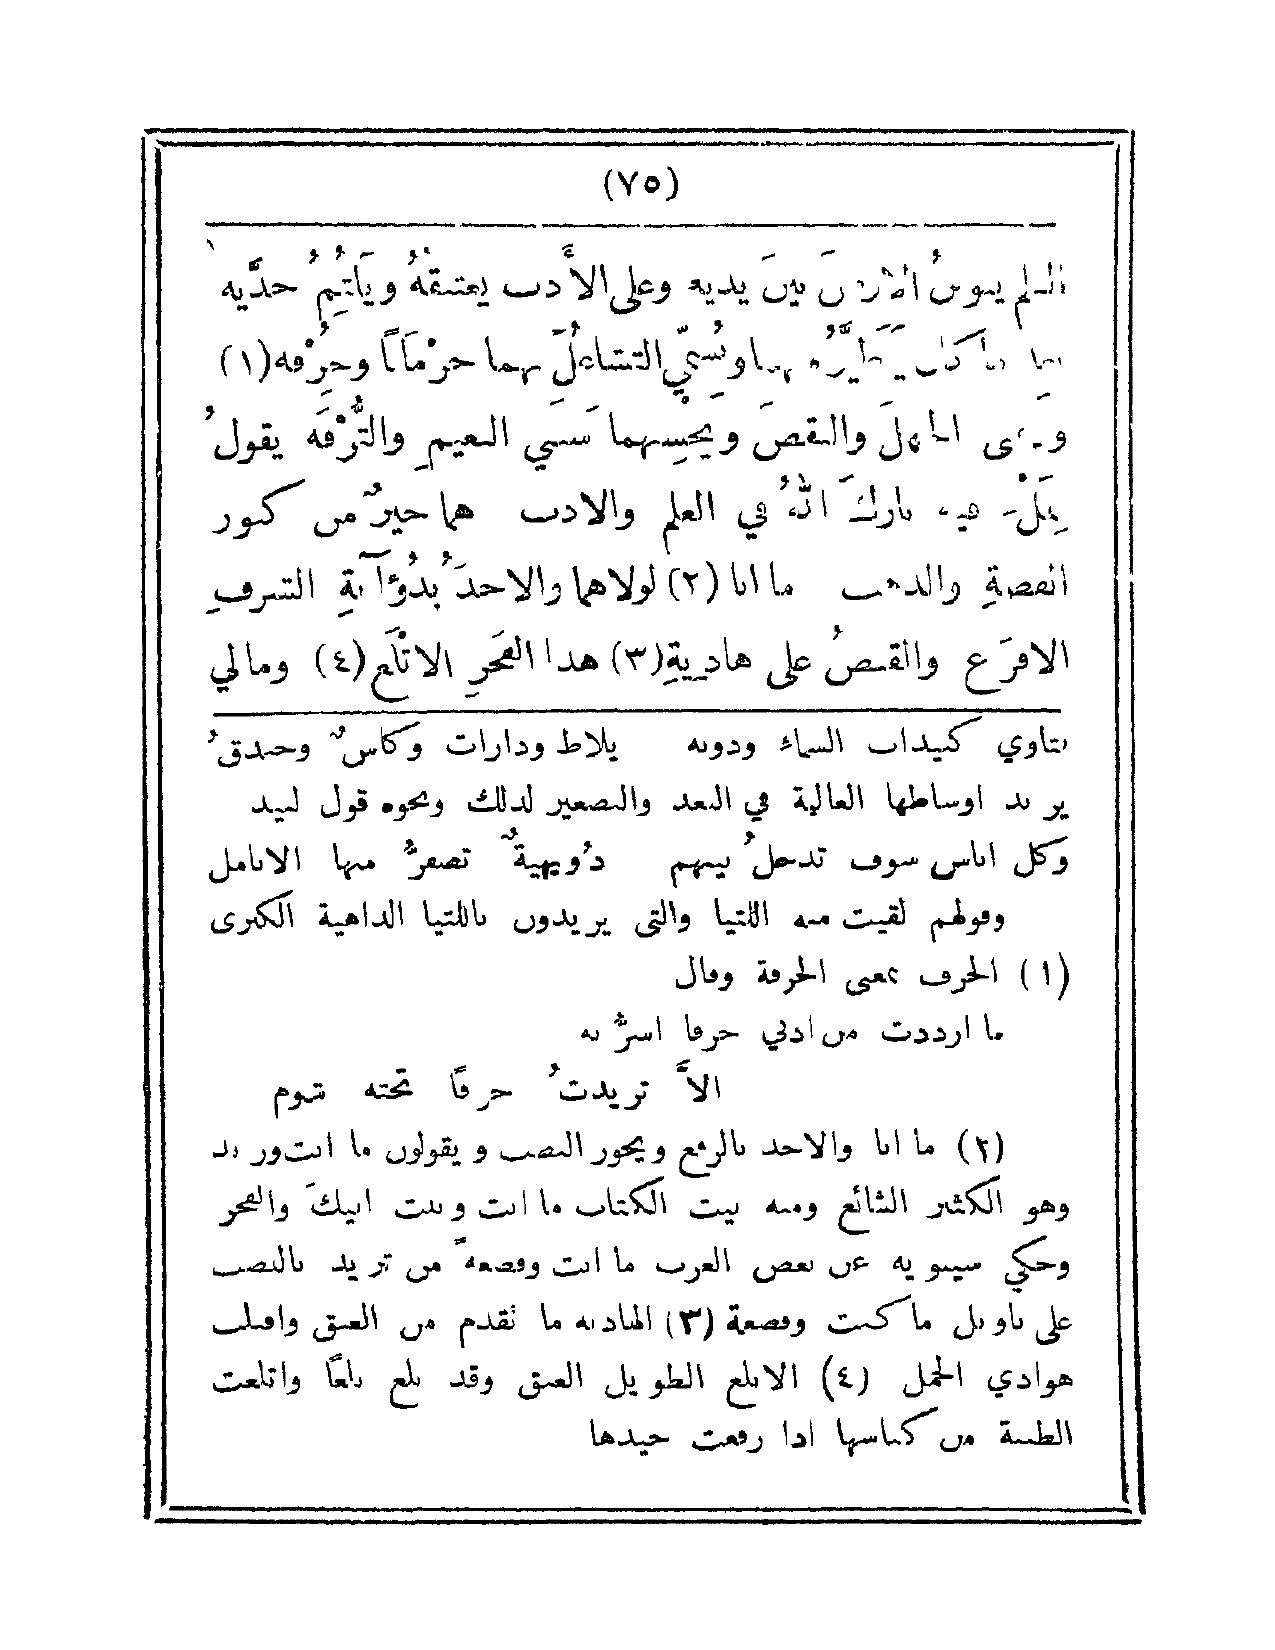 (٧٥)
بينَ يديه وعلى الأدب يعتنقهُ ويَلْتَثِمُ خدَّيه
التشاغلُ بهما حرْمَانًا وحِرْفه (١)
والنقصَ ويحْسِبهما سببي النعيمِ والتُّرْفَه يقولُ
بارك اللهُ في العلم والادب هما خيرٌ من كنوز
الفضةِ والذهب ما انا (٢) لولاهما والاحدَ بُدُوُّ آيةِ الشرفِ
الافرَع والقبضُ على هاديةِ (٣) هذا الفخرِ الاتْلَع (٤) ومالي
يتاوي كبيدات السماء ودونه بلاط ودارات وكاسٌ وخندقُ
يريد اوساطها العالية في البعد والتصغير لذلك ونحوه قول لبيد
وكل اناس سوف تدخلُ بينهم دُويهيةٌ تصفرُّ منها الانامل
وقولهم لقيت منه اللتيا والتي يريدون باللتيا الداهية الكبرى
(١) الحرف بمعنى الحرفة وقال
ما ازددت من ادبي حرفا اسرُّ به
الاَّ تزيدتُ حرفًا تحته شوم
(٢) ما انا والاحد بالرفع ويجوز النصب ويقولون ما انت وزيد
وهو الكثير الشائع ومنه بيت الكتاب ما انت وبنت ابيكَ والفخر
وحكي سيبويه عن بعض العرب ما انت وقصعةً من ثريد بالنصب
على تاويل ما كنت وقصعة (٣) الهاديه ما تقدم من العنق واقبلت
هوادي الخيل (٤) الاتلع الطويل العنق وقد تلع تلعًا واتلعت
الظبية من كناسها اذا رفعت جيدها